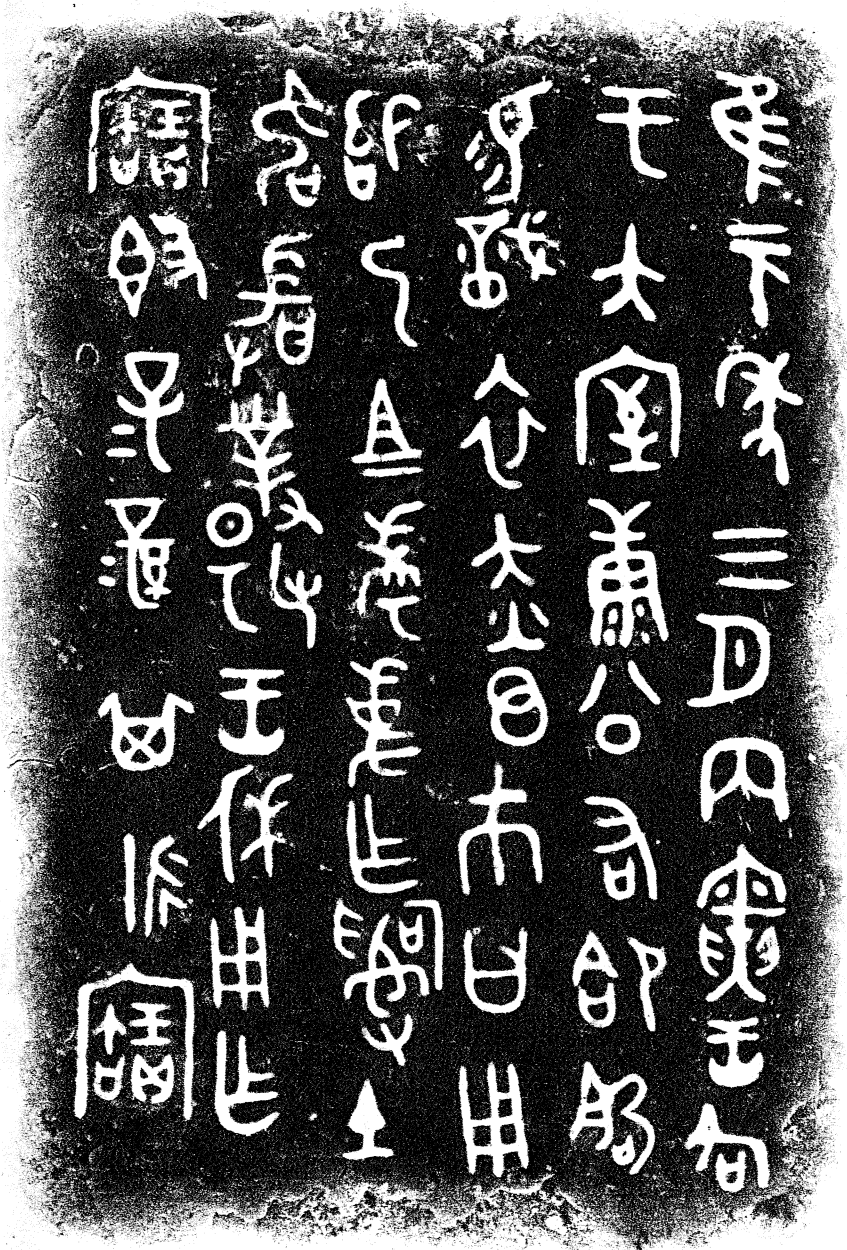 隹元年三月丙寅王各
于大室康公右郃𠭯
易戠衣赤⊙巿曰用
𤔲乃且考事乍𤔲土
𠭯敢對揚王休用乍
寶𣪘子=孫=其永寶